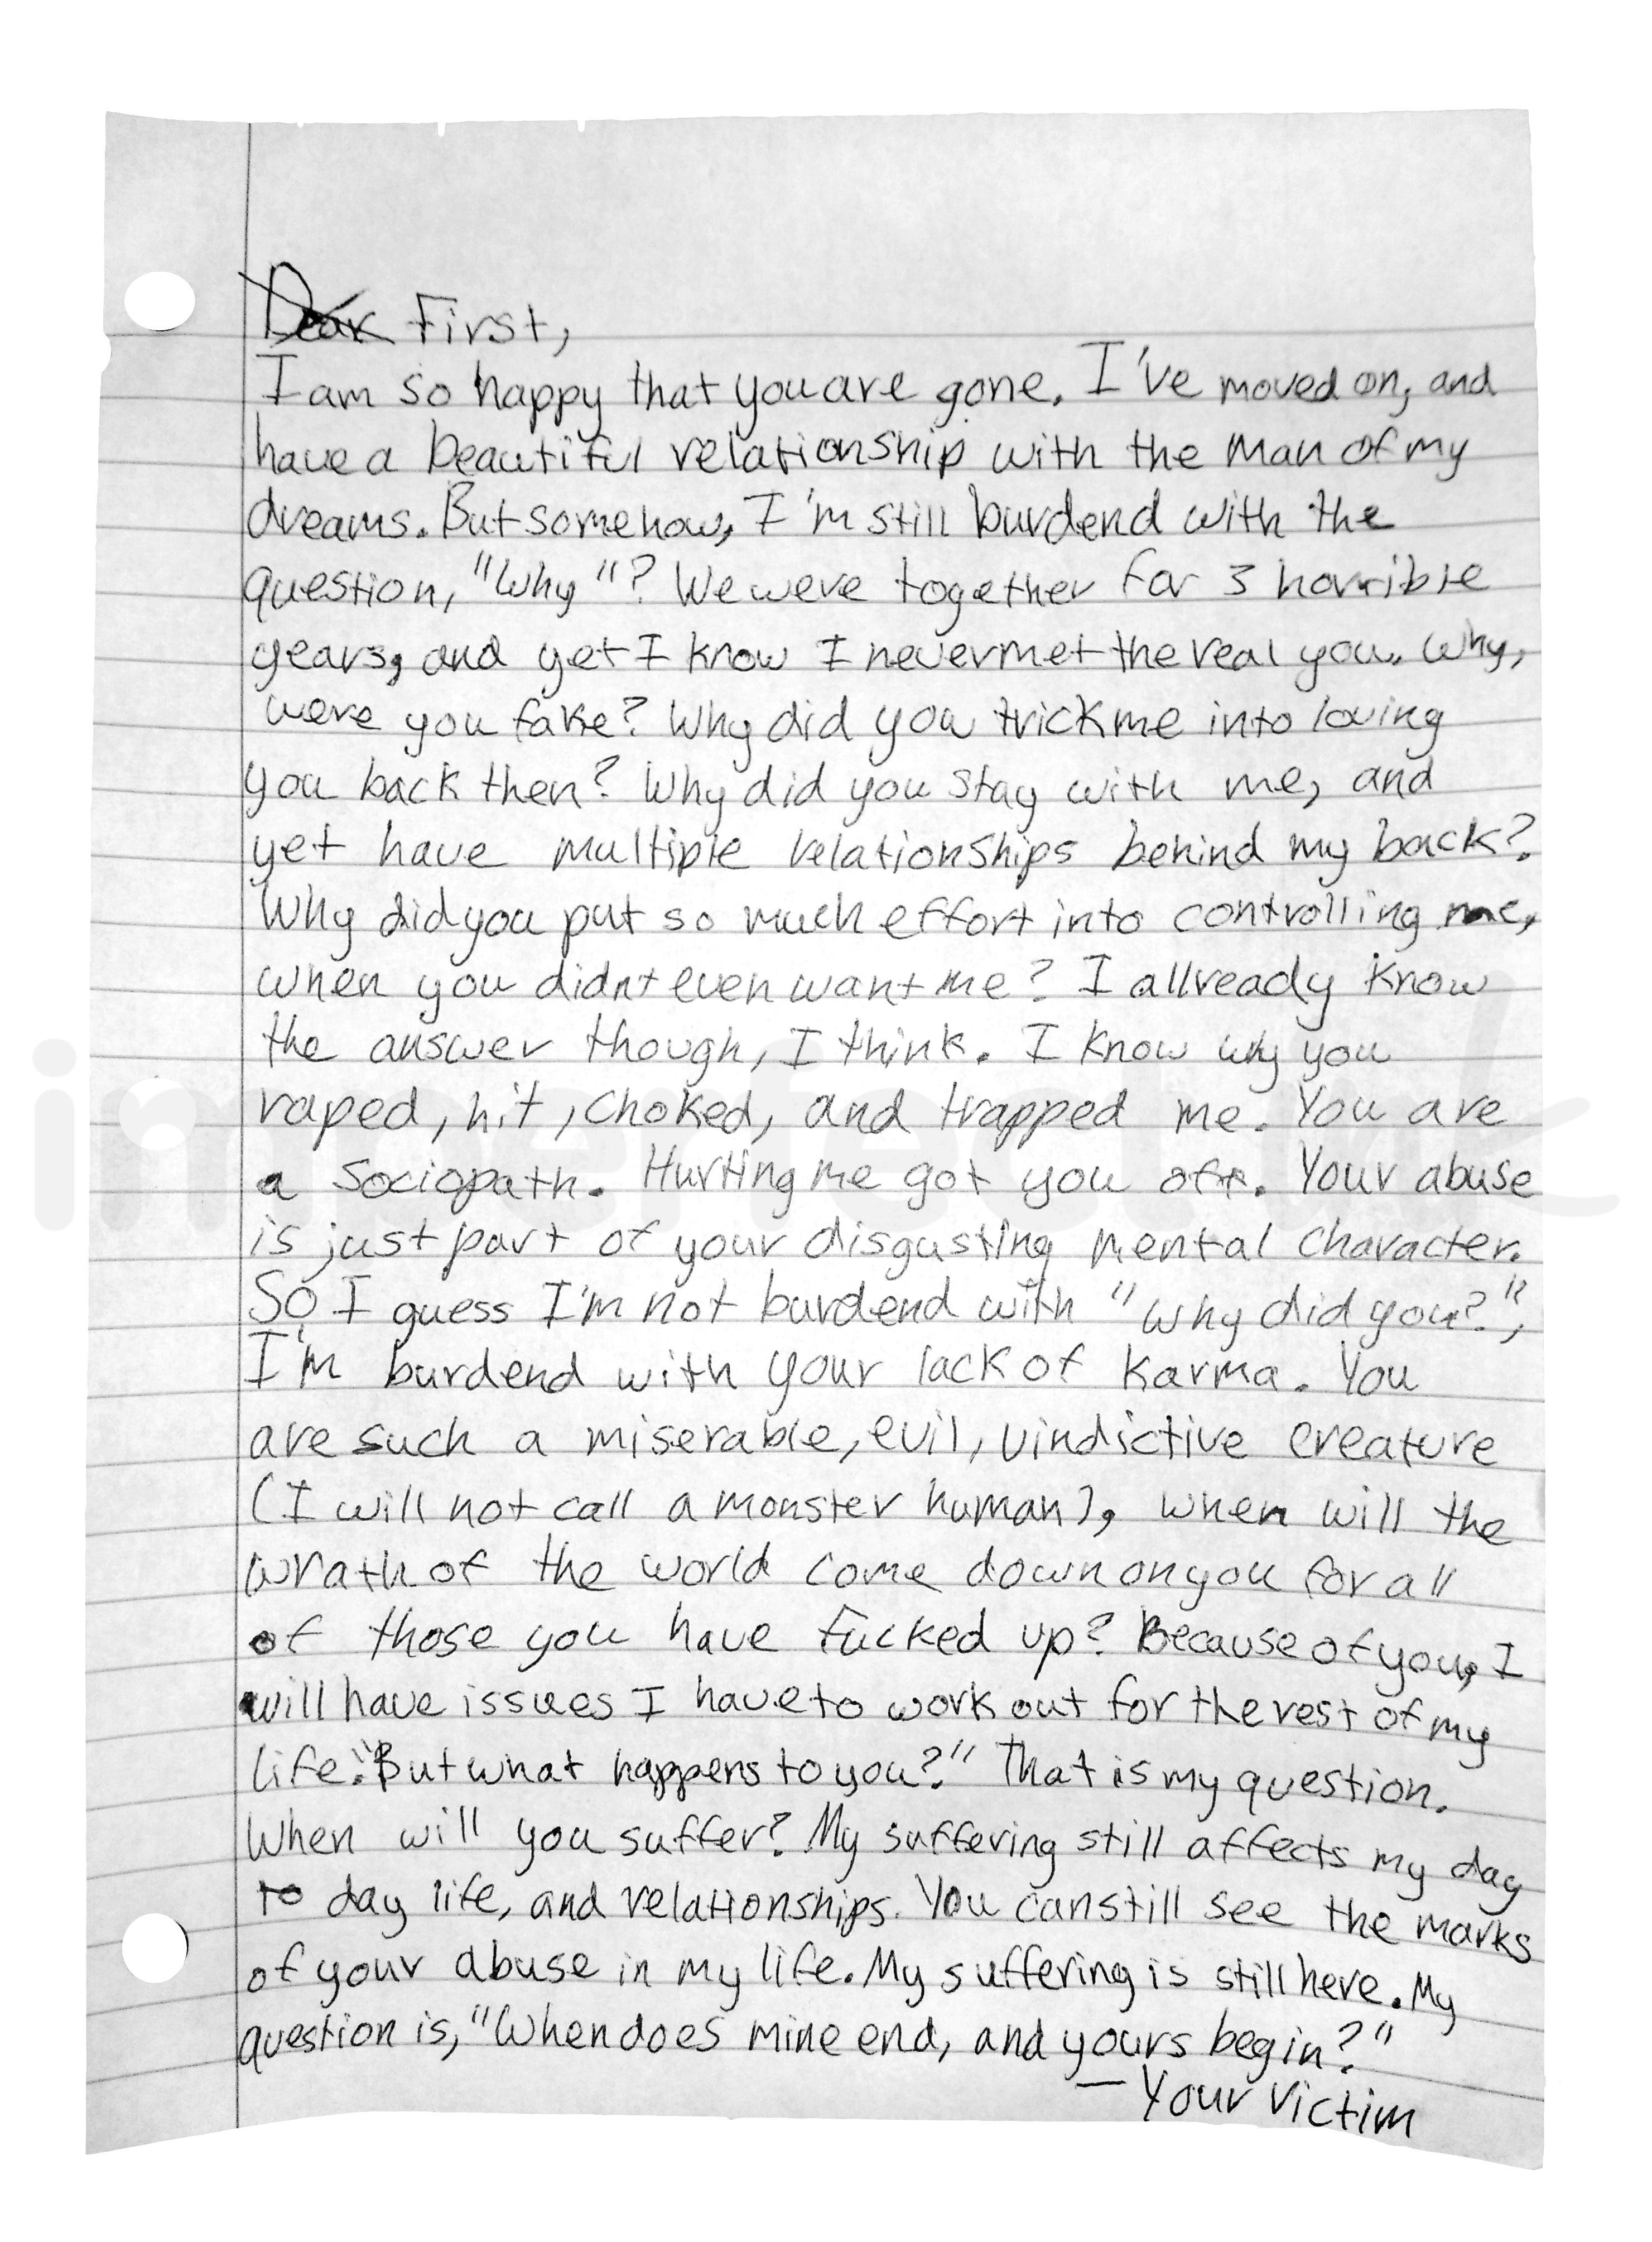 Dear First,
I am so happy that you are gone. I've moved on, and
have a beautiful relationship with the man of my
dreams. But somehow, I'm still burdend with the
question, "Why"? We were together for 3 horrible
years, and yet I know I never met the real you. Why,
were you fake? Why did you trick me into loving
you back then? Why did you stay with me, and
yet have multiple relationships behind my back?
Why did you put so much effort into controlling me,
when you didnt even want me? I allready know
the answer though, I think. I know why you
raped, hit, choked, and trapped me. You are
a sociopath. Hurting me got you off. Your abuse
is just part of your disgusting mental character.
So I guess I'm not burdend with "why did you?",
I'm burdend with your lack of karma. You
are such a miserable, evil, vindictive creature
(I will not call a monster human), when will the
wrath of the world come down on you for all
of those you have fucked up? Because of you, I
will have issues I have to work out for the rest of my
life. "But what happens to you?" That is my question.
When will you suffer? My suffering still affects my day
to day life, and relationships. You can still see the marks
of your abuse in my life. My suffering is still here. My
question is, "When does mine end, and yours begin?"
— Your Victim